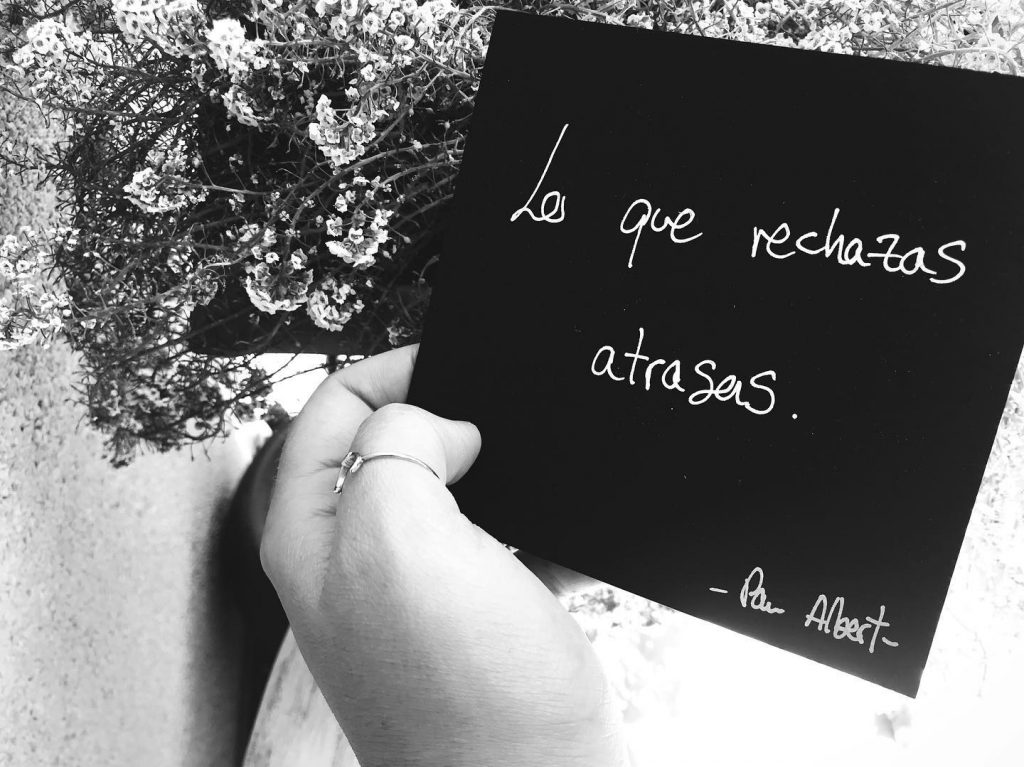 Lo que rechazas
atrasas.
-Pau Albert-